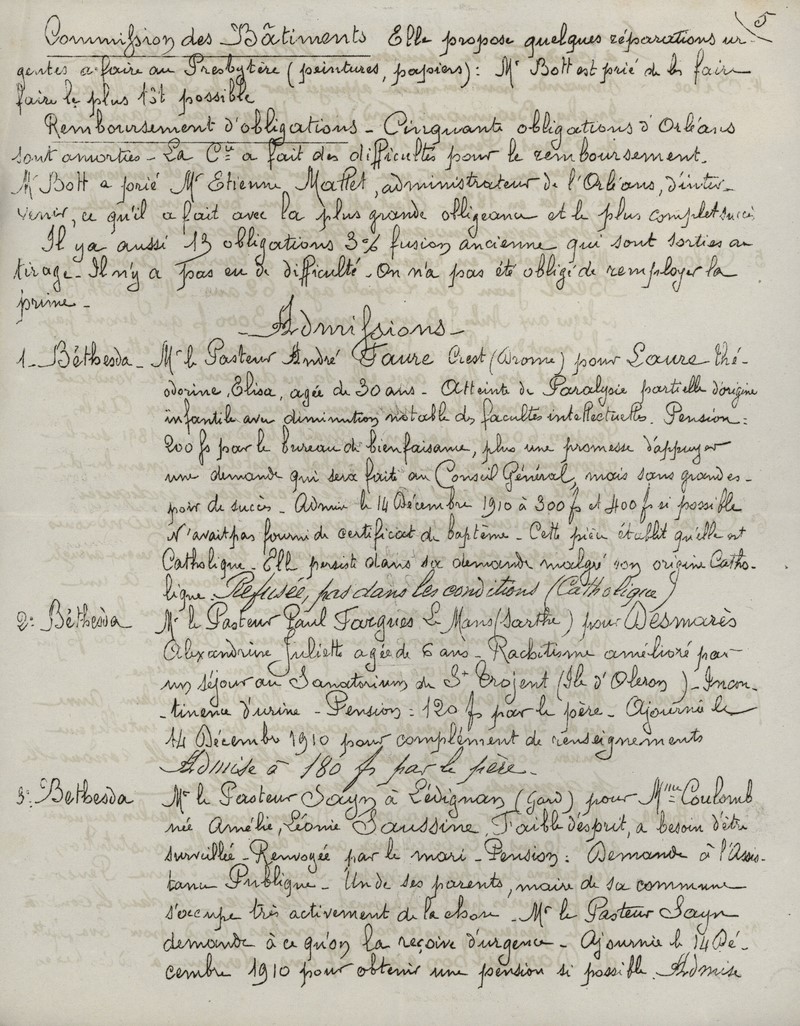 5
Commission des Bâtiments Elle propose quelques réparations ur-
gentes a faire au Presbytère (peintures, papiers): Mr Bott est prié de les faire
faire le plus tôt possible
Remboursement d'obligations - Cinquante obligations d'Orléans
sont amorties - La Cie a fait des difficultés pour le remboursement.
Mr Bott a prié Mr Etienne Mallet, administrateur de l'Orléans, d'inter-
venir, ce qu'il a fait avec la plus grande obligeance et le plus complet succès
Il y a aussi 13 obligations 3% fusion ancienne qui sont sorties au
tirage - Il n'y a pas eu de difficulté - On n'a pas été obligé de remployer la
prime -
- Admissions -
1 - Béthesda - Mr le Pasteur André Faure Crest (Drome) pour Laure Thé-
odorine, Elisa, agée de 30 ans - Atteinte de Paralysie partielle d'origine
infantile avec diminution notable des facultés intellectuelles. Pension:
200 fs par le bureau de bienfaisance, plus une promesse d'appuyer
une demande qui sera faite au Conseil Général, mais sans grand es-
poir de succès - Admise le 14 Décembre 1910 à 300 f et 400 f si possible
N'avait pas fourni de certificat de baptême - Cette pièce établit qu'elle est
Catholique - Elle persiste dans sa demande malgré son origine Catho-
lique. Refusée, pas dans les conditions (Catholique)
2: Béthesda Mr le Pasteur Paul Fargues Le Mans (Sarthe) pour Desmarès
Alexandrine Juliette agée de 6 ans - Rachitisme amélioré par
un séjour au Sanatorium de St Trojent (Ile d'Oleron) - Incon-
-tinence d'urine - Pension: 120 f par le père - Ajournée le
14 Décembre 1910 pour complément de renseignements
Admise à 180 f par le père -
3: Béthesda Mr le Pasteur Sayn à Lédignan (Gard) pour Mme Coulomb
née Amélie, Léonie Saussine, Faible d'esprit, a besoin d'être
surveillée - Renvoyée par le mari - Pension: Demande à l'Assis-
tance Publique - Un de ses parents, maire de sa commune
s'occupe très activement de la chose - Mr le Pasteur Sayn
demande à ce qu'on la reçoive d'urgence - Ajournée le 14 Dé-
cembre 1910 pour obtenir une pension si possible. Admise